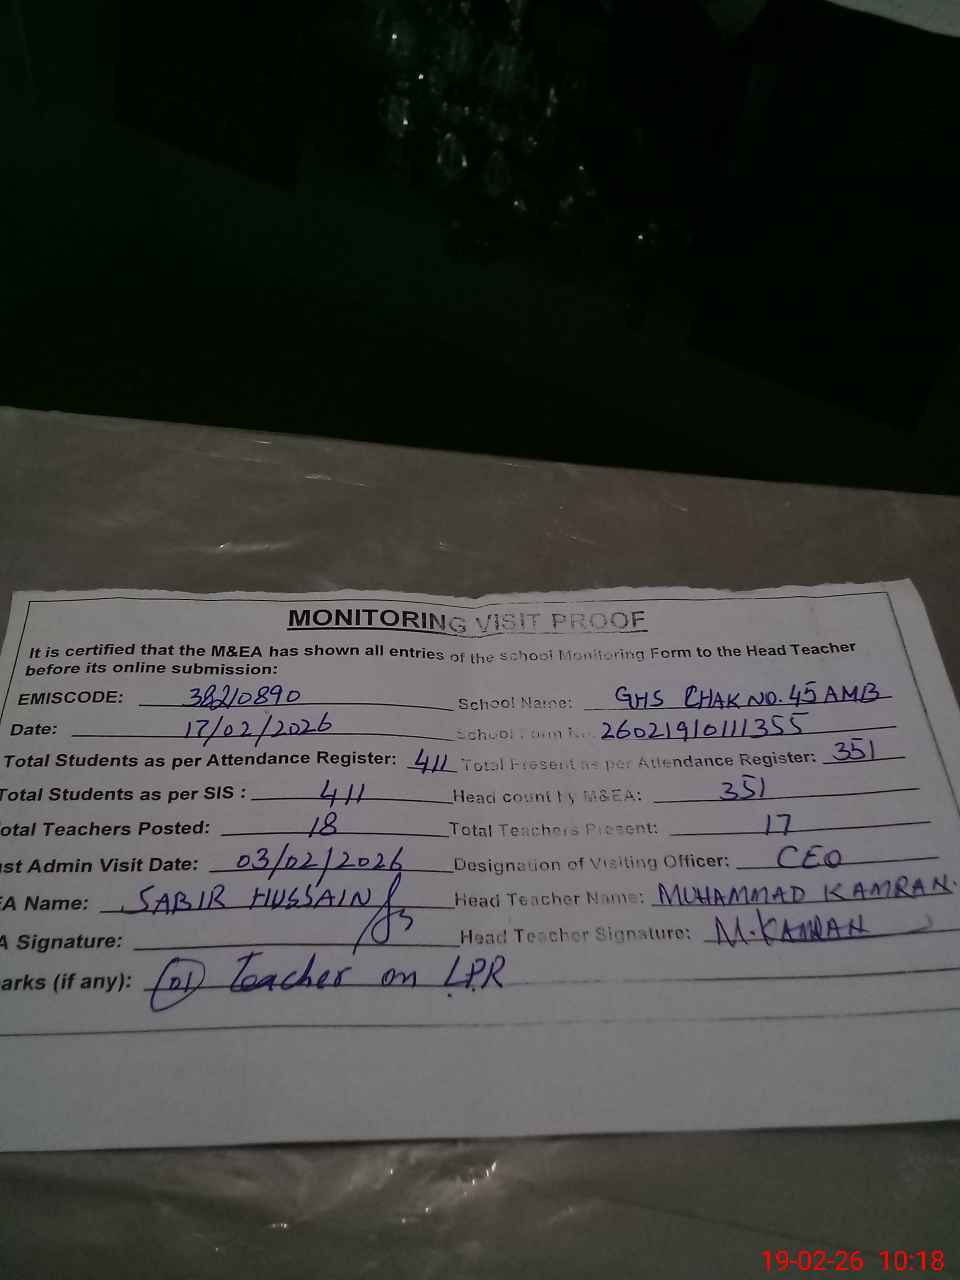 MONITORING VISIT PROOF
It is certified that the M&EA has shown all entries of the school Monitoring Form to the Head Teacher
before its online submission:
EMISCODE: 38210890 School Name: GHS CHAK NO. 45 AMB
Date: 17/02/2026 School Form No. 26021910111355
Total Students as per Attendance Register: 411 Total Present as per Attendance Register: 351
Total Students as per SIS : 411 Head count by M&EA: 351
otal Teachers Posted: 18 Total Teachers Present: 17
st Admin Visit Date: 03/02/2026 Designation of Visiting Officer: CEO
EA Name: SABIR HUSSAIN Head Teacher Name: MUHAMMAD KAMRAN.
A Signature: Head Teacher Signature: M.KAMRAN
arks (if any): 01 Teacher on L.P.R
19-02-26 10:18